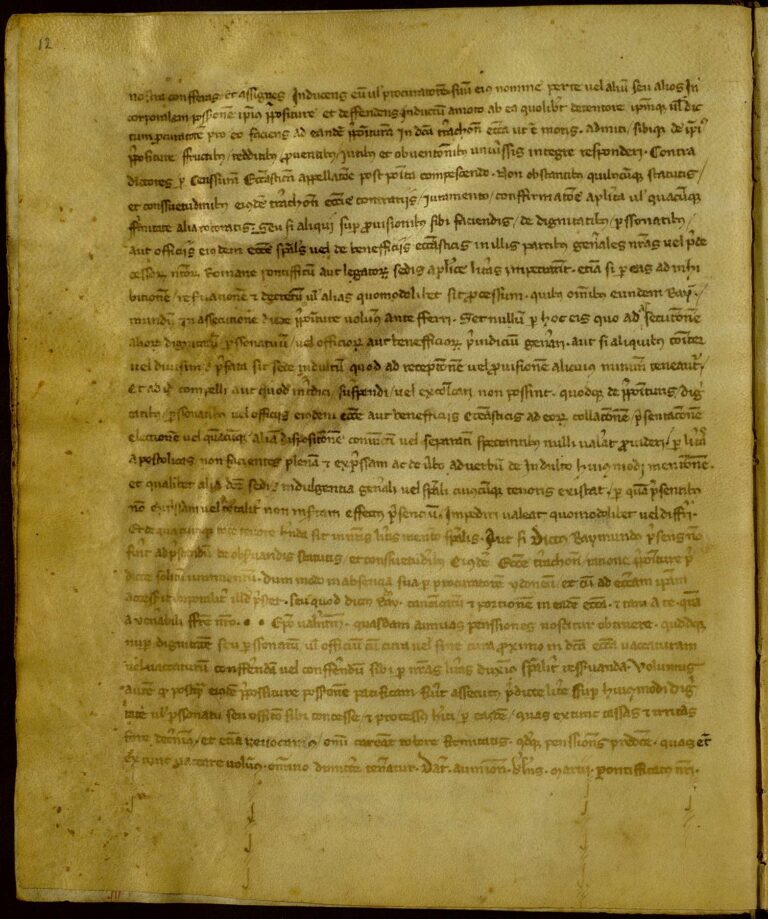 12
nostra conferas et assignes Inducens eum vel procuratorem suum eius nomine per te vel alium seu alios In
corporalem possessionem ipsius prepositure et deffendens Inductum amoto ab ea quolibet detentore ipsumque vel dic
tum procuratorem pro eo faciens ad eandem preposituram In dicta Tirachon ecclesia ut est moris admitti sibique de ipsius
prepositure fructibus redditibus proventibus iuribus et obventionibus universis integre responderi Contra
dictores per Censuram Ecclesiasticam appellatione postposita compescendo Non obstantibus quibuscumque statutis
et consuetudinibus eiusdem Tirachon ecclesie contrariis iuramento confirmatione apostolica vel quacumque
firmitate alia roboratis Seu si aliqui super provisionibus sibi faciendis de dignitatibus personatibus
aut officiis eiusdem ecclesie speciales vel de beneficiis ecclesiasticis in illis partibus generales nostras vel prede
cessorum nostrorum Romane pontificum aut legatorum sedis apostolice litteras impetrarint etiam si per eas ad inhi
bitionem reservationem et decretum vel alias quomodolibet sit processum quibus omnibus eundem Ray
mundum in assecutione dicte prepositure volumus anteferri Set nullum per hoc eis quo ad assecutionem
aliorum dignitatum personatuum vel officiorum aut benefficiorum preiudicium generari aut si aliquibus communiter
vel divisim prefata sit sede indultum quod ad receptionem vel provisionem alicuius minime teneantur
Et ad id compelli aut quod interdici suspendi vel excommunicari non possint quodque de preposituris dig
tatibus personatibus vel officiis eiusdem ecclesie aut beneficiis Ecclesiasticis ad eorum collationem presentationem
electionem vel quamcumque aliam dispositionem coniunctim vel separatim spectantibus nulli valeat provideri per litteras
apostolicas non facientes plenam et expressam ac de verbo ad verbum de Indulto huiusmodi mentionem
et qualibet alia dicte sedis indulgentia generali vel speciali cuiuscumque tenoris existat per quam presentibus
non expressam vel totaliter non insertam effectus presencium Impediri valeat quomodolibet vel differri
Et de qua cuiusque toto tenore habenda sit in nostris litteris mentio specialis Aut si Dictus Raymundus presens non
fuerit ad prestandum de observandis statutis et consuetudinibus Eiusdem Ecclesie Tirachon ratione prepositure pre
dicte solitum iuramentum dum modo in absencia sua per procuratorem ydoneum et cum ad ecclesiam ipsam
accesserit corporaliter illud prestet Seu quod dictus Ray canonicatum et portionem in eadem ecclesia et tam a te quam
a venerabili fratre nostro Episcopo Valentinensi quasdam annuas pensiones noscitur obtinere quodque
nuper dignitatem seu personatum vel officium cum cura vel sine cura proximo in dicta ecclesia vaccaturam
vel vaccaturum conferendam vel conferendum sibi per nostras litteras duximus specialiter reservanda Volumus
autem quod postquam eiusdem prepositure possessionem pacificam fuerit assecutus predicte littere super huiusmodi dig
tate vel personatu seu officio sibi concesse et processus habiti per easdem quas extunc cassas et irritas
fore decernimus et etiam revocamus omni careant robore firmitatis quodque pensiones predictas quas et
Extunc vaccare volumus omnino dimittere teneatur Datum Avinion kalendas Marcii pontificatus nostri